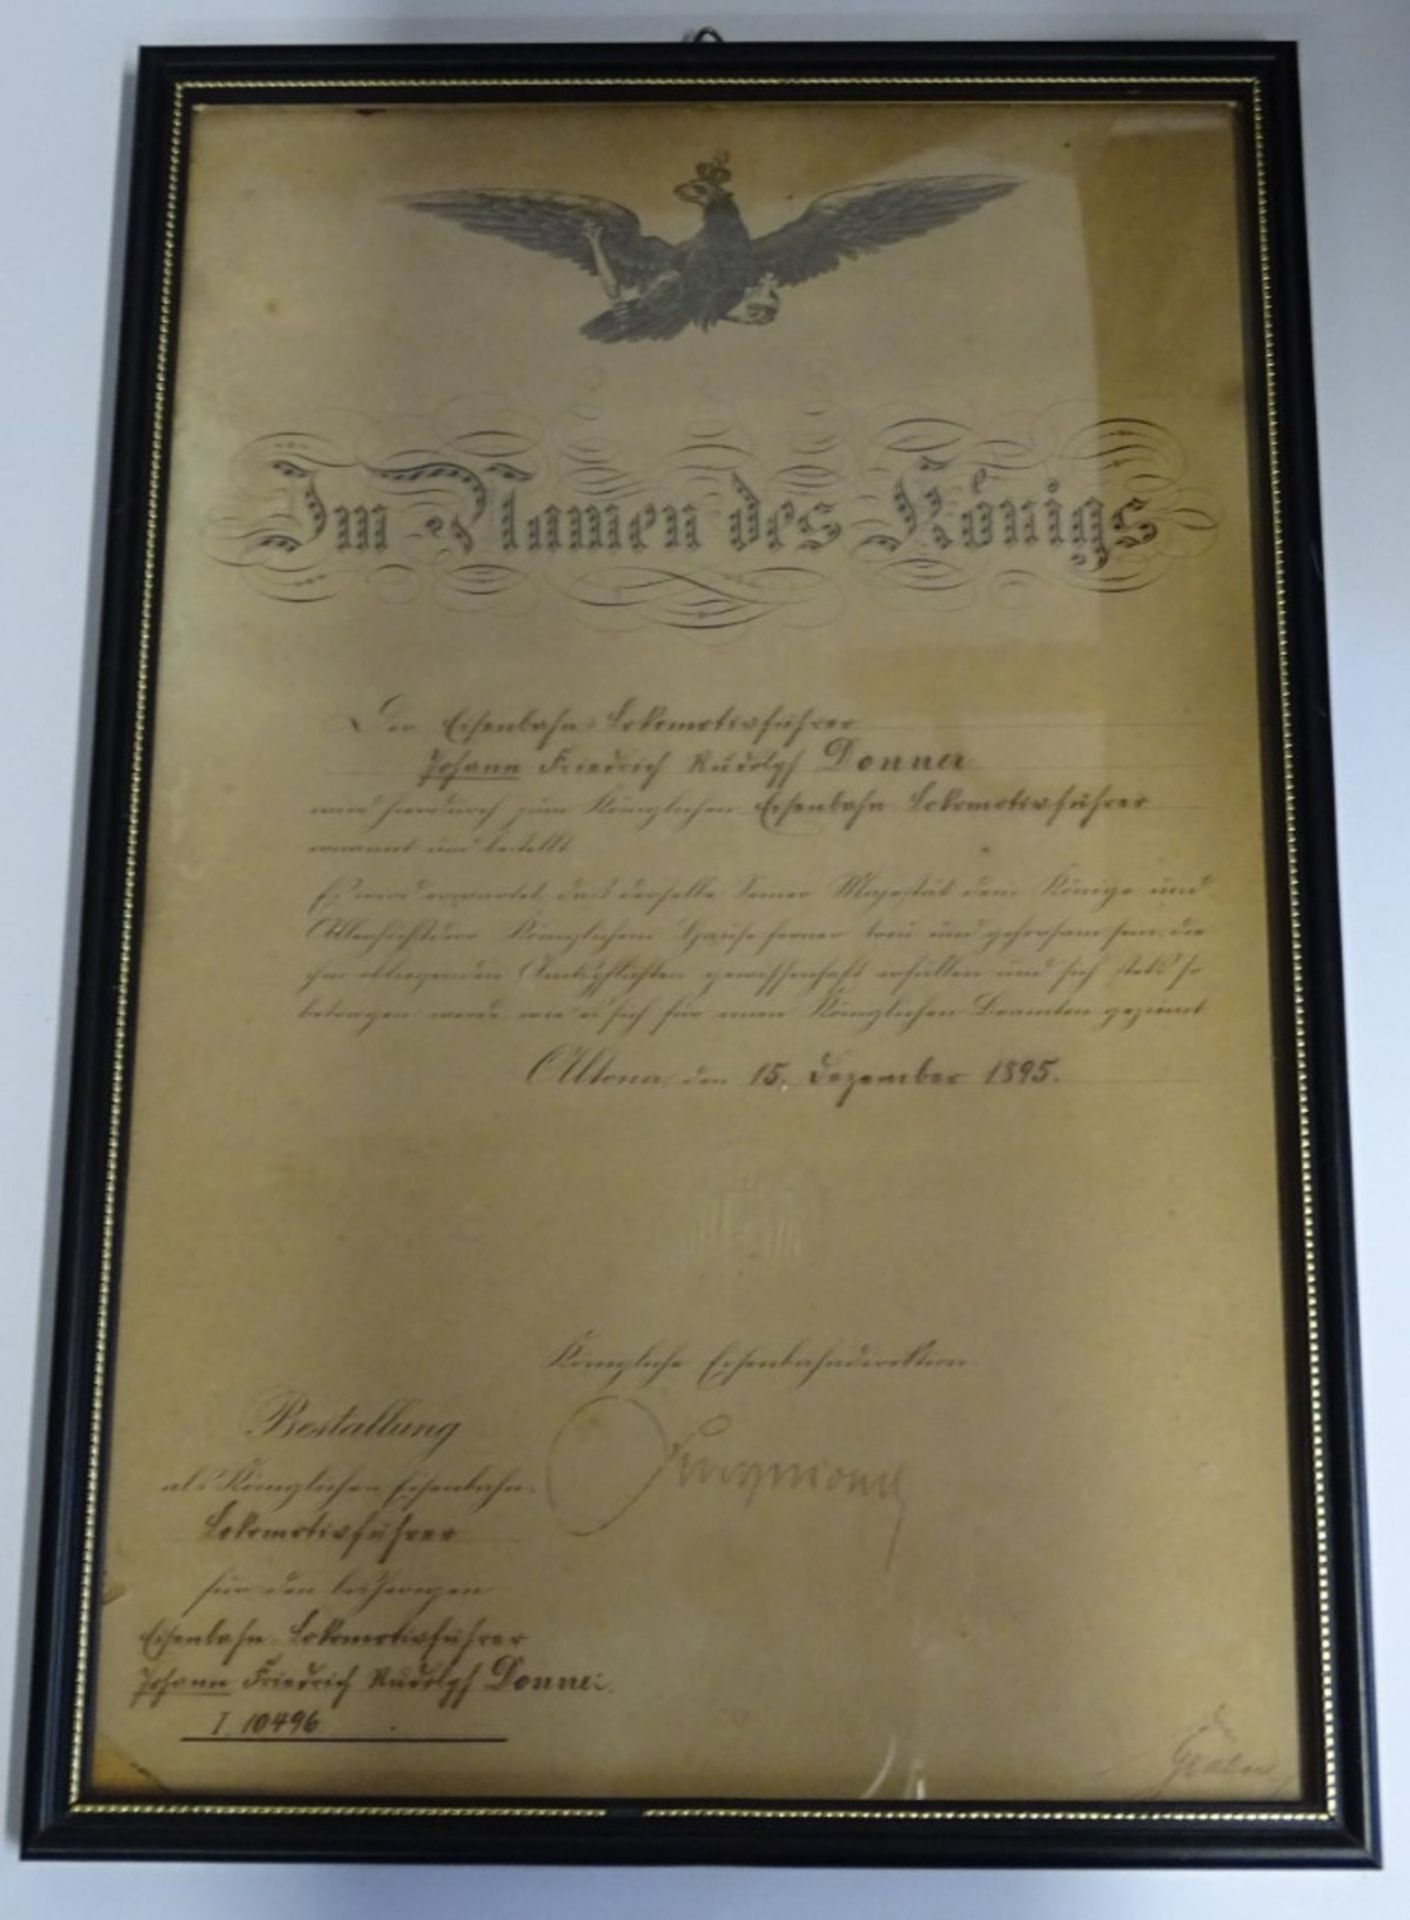 Im Namen des Königs
Der Eisenbahn-Lokomotivführer
Johann Friedrich Rudolph Donner
wird hierdurch zum Königlichen Eisenbahn-Lokomotivführer
ernannt und bestellt.
Es wird erwartet, daß derselbe Seiner Majestät dem Könige und
Allerhöchstderen Königlichem Hause ferner treu und gehorsam sein, die
ihm obliegenden Amtspflichten gewissenhaft erfüllen und sich stets so
betragen werde, wie es sich für einen Königlichen Beamten geziemt.
Altona, den 15. Dezember 1895.
Königliche Eisenbahndirektion
Bestallung
als Königlicher Eisenbahn-
Lokomotivführer
für den bisherigen
Eisenbahn-Lokomotivführer
Johann Friedrich Rudolph Donner.
I. 10496